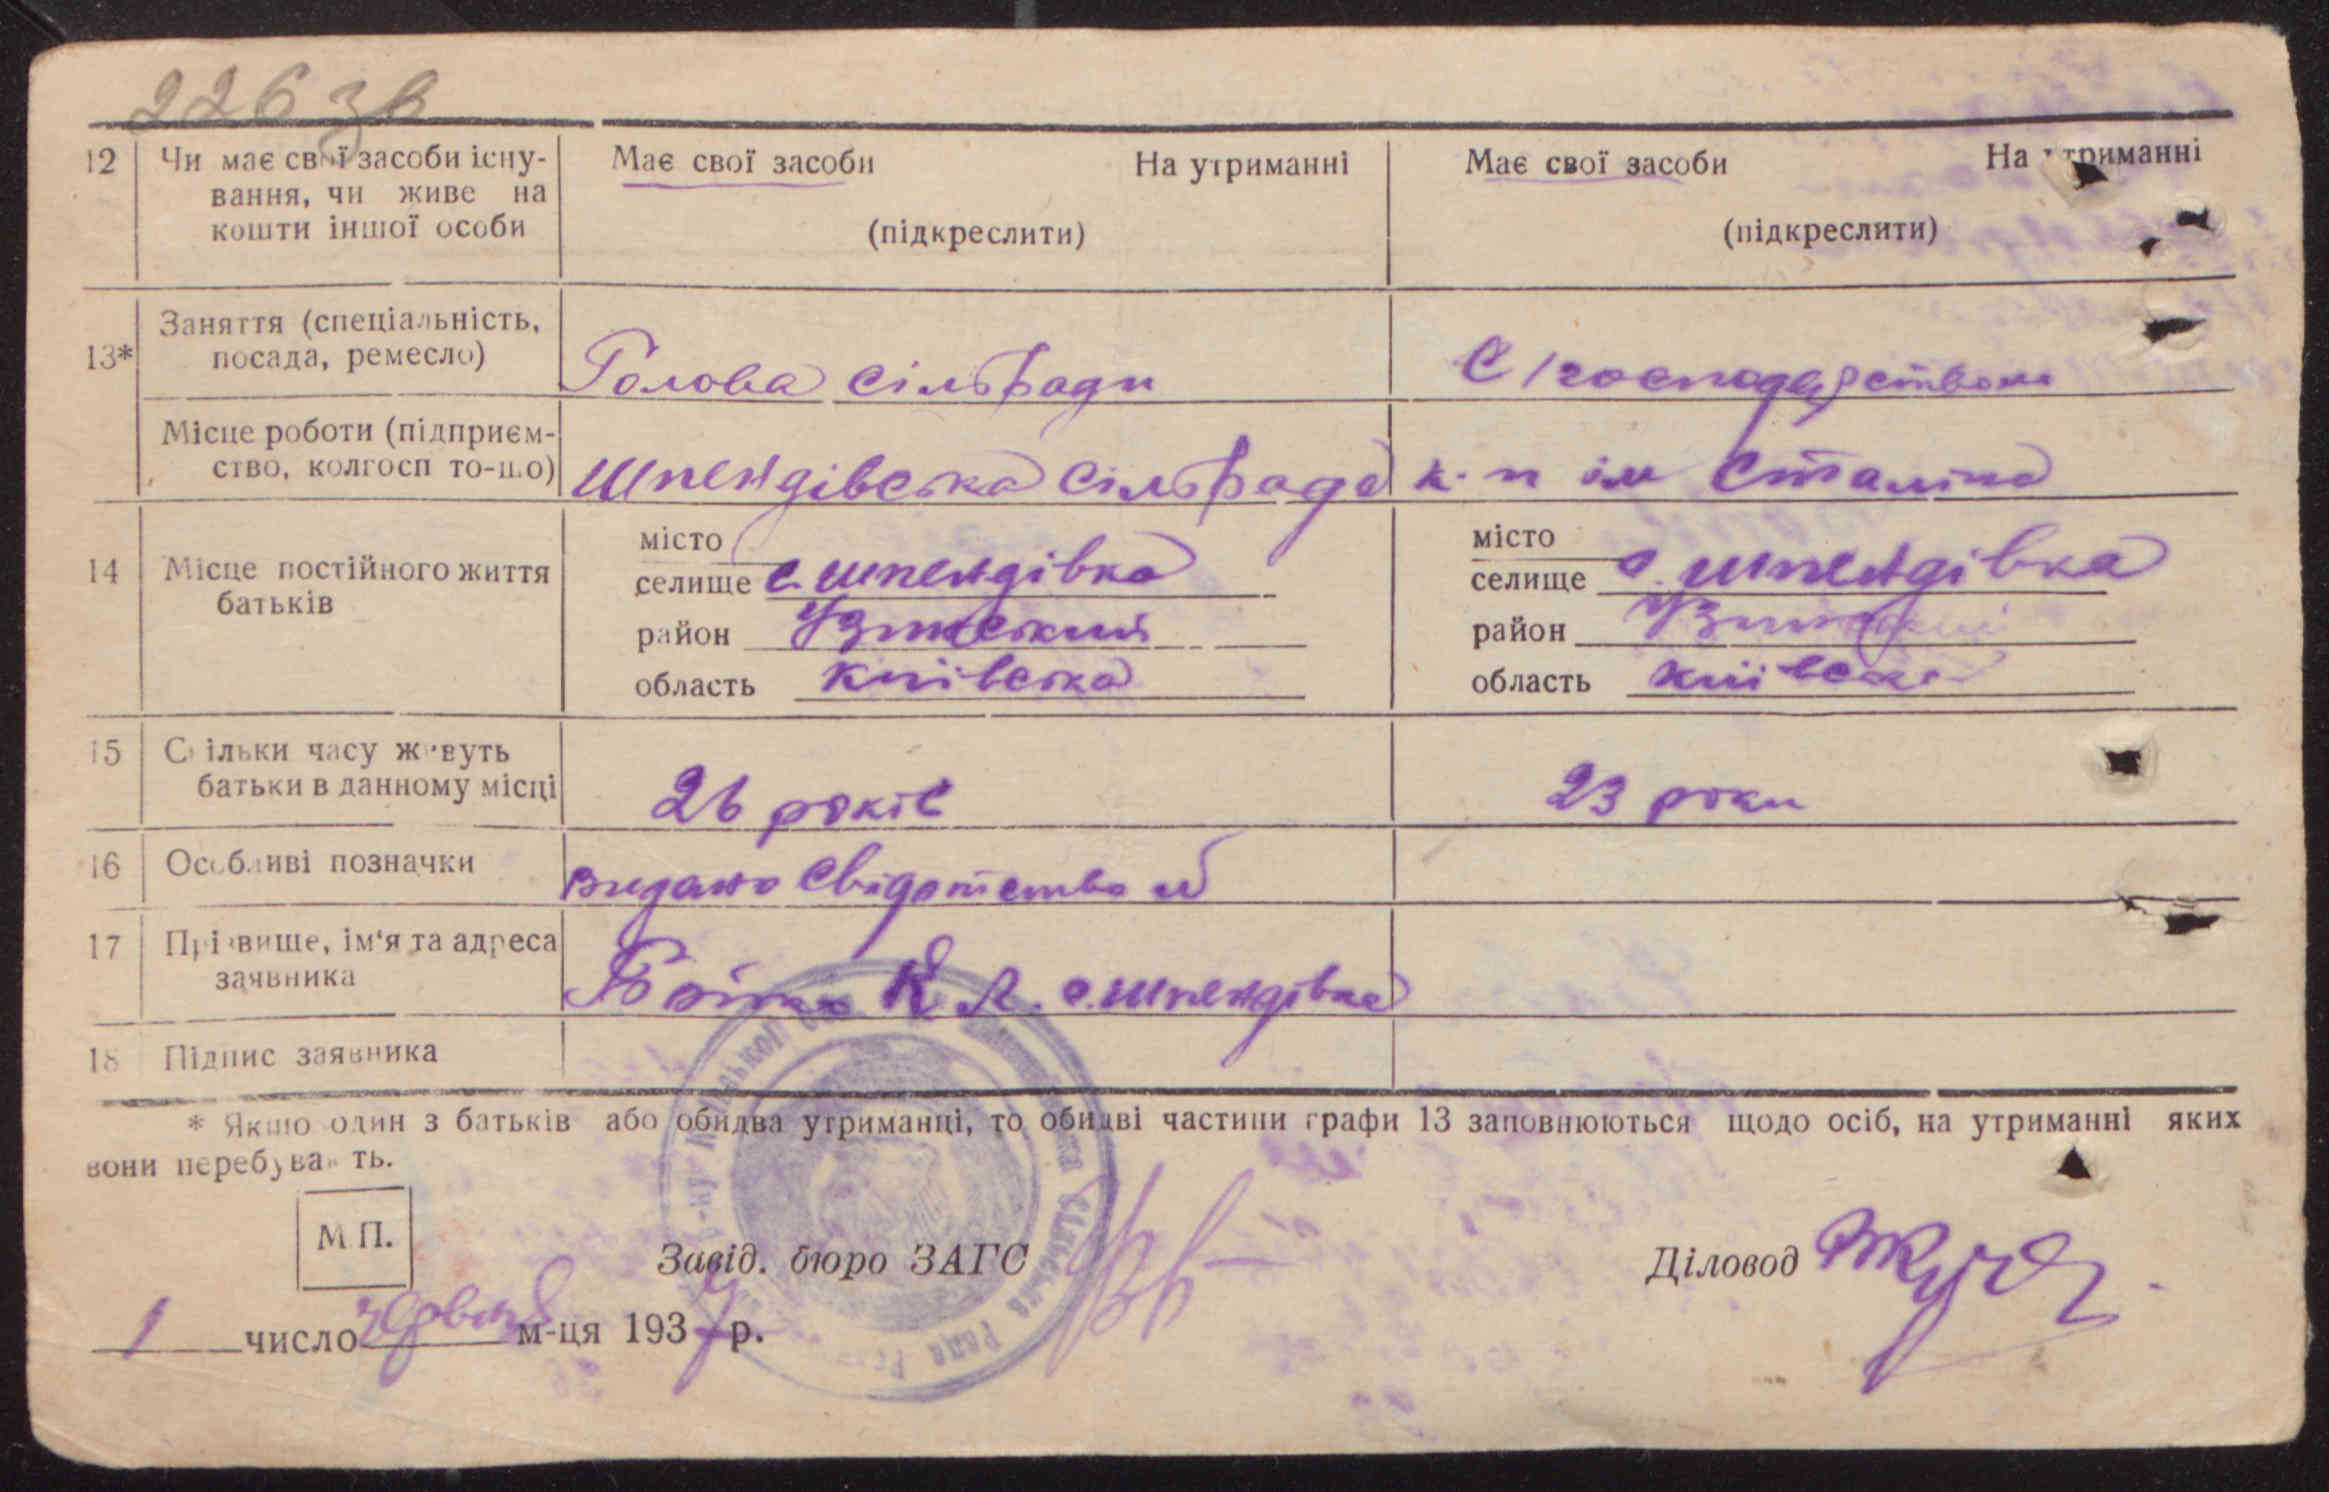 226 зв
12 Чи має свої засоби існу-
вання, чи живе на
кошти іншої особи
Має свої засоби На утриманні
(підкреслити)
Має свої засоби На утриманні
(підкреслити)
13* Заняття (спеціальність,
посада, ремесло)
Голова сільради
С/господарством
Місце роботи (підприєм-
ство, колгосп то-що)
Шпендівська сільрада
к-п ім Сталіна
14 Місце постійного життя
батьків
місто
селище с. Шпендівка
район Узинський
область Київська
місто
селище с. Шпендівка
район Узинський
область Київська
15 Скільки часу живуть
батьки в данному місці
26 років
23 роки
16 Особливі позначки
видано свідотство
17 Прізвище, ім'я та адреса
заявника
с. Шпендівка
18 Підпис заявника
* Якшо один з батьків або обидва утриманці, то обидві частини графи 13 заповнюються щодо осіб, на утриманні яких
вони перебувають.
М.П.
Завід. бюро ЗАГС
Діловод
1 число червня м-ця 1937 р.